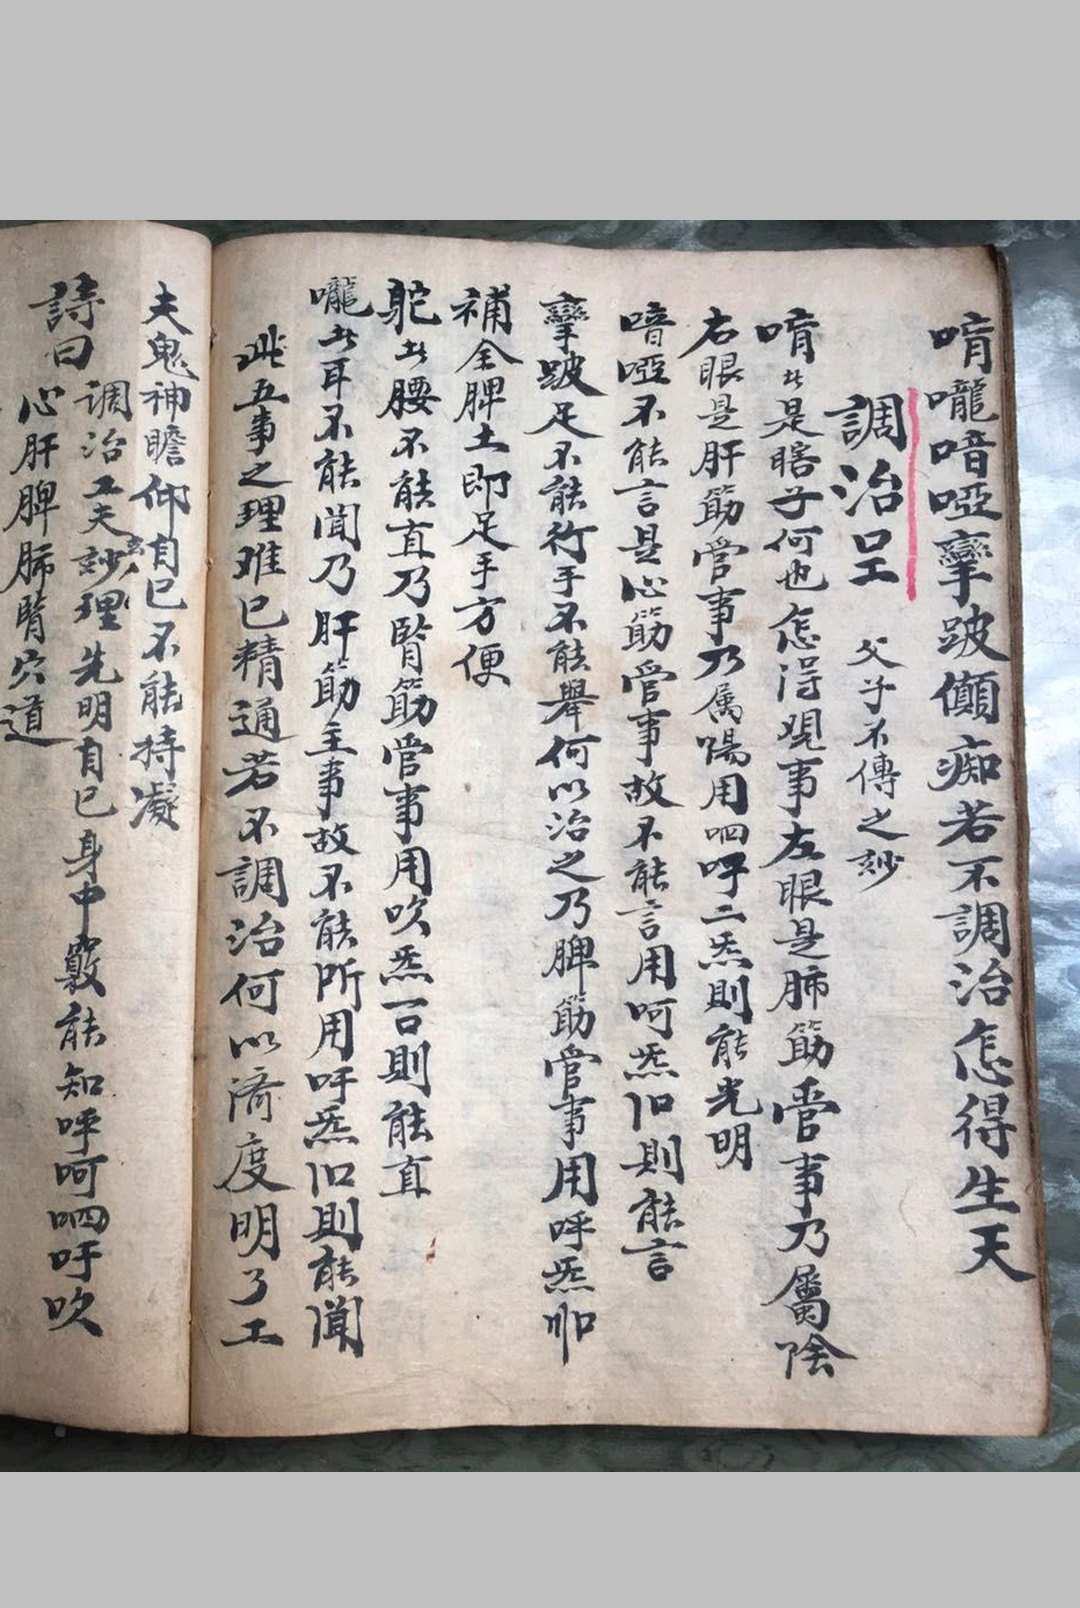 㖞嚨喑啞攣跛傎痴若不調治怎得生天
調治呈 父子不傳之玅
㖞是瞎子何也怎得觀事左眼是肺筋管事乃屬陰
右眼是肝筋管事乃属陽用呬呼二炁則能光明
喑啞不能言是心筋管事故不能言用呵炁則能言
攣跛足不能行手不能舉何以治之乃脾筋管事用呼炁
補全脾土即足手方便
躴腰不能直乃腎筋管事用吹炁則能直
嚨耳不能聞乃肝筋主事故不能所用吁炁則能聞
此五事之理难已精通若不調治何以济度明了工
夫鬼神瞻仰自己不能持凝
詩曰 調治工夫玅理 先明自己身中竅能知呼呵呬吁吹
心肝脾肺腎穴道